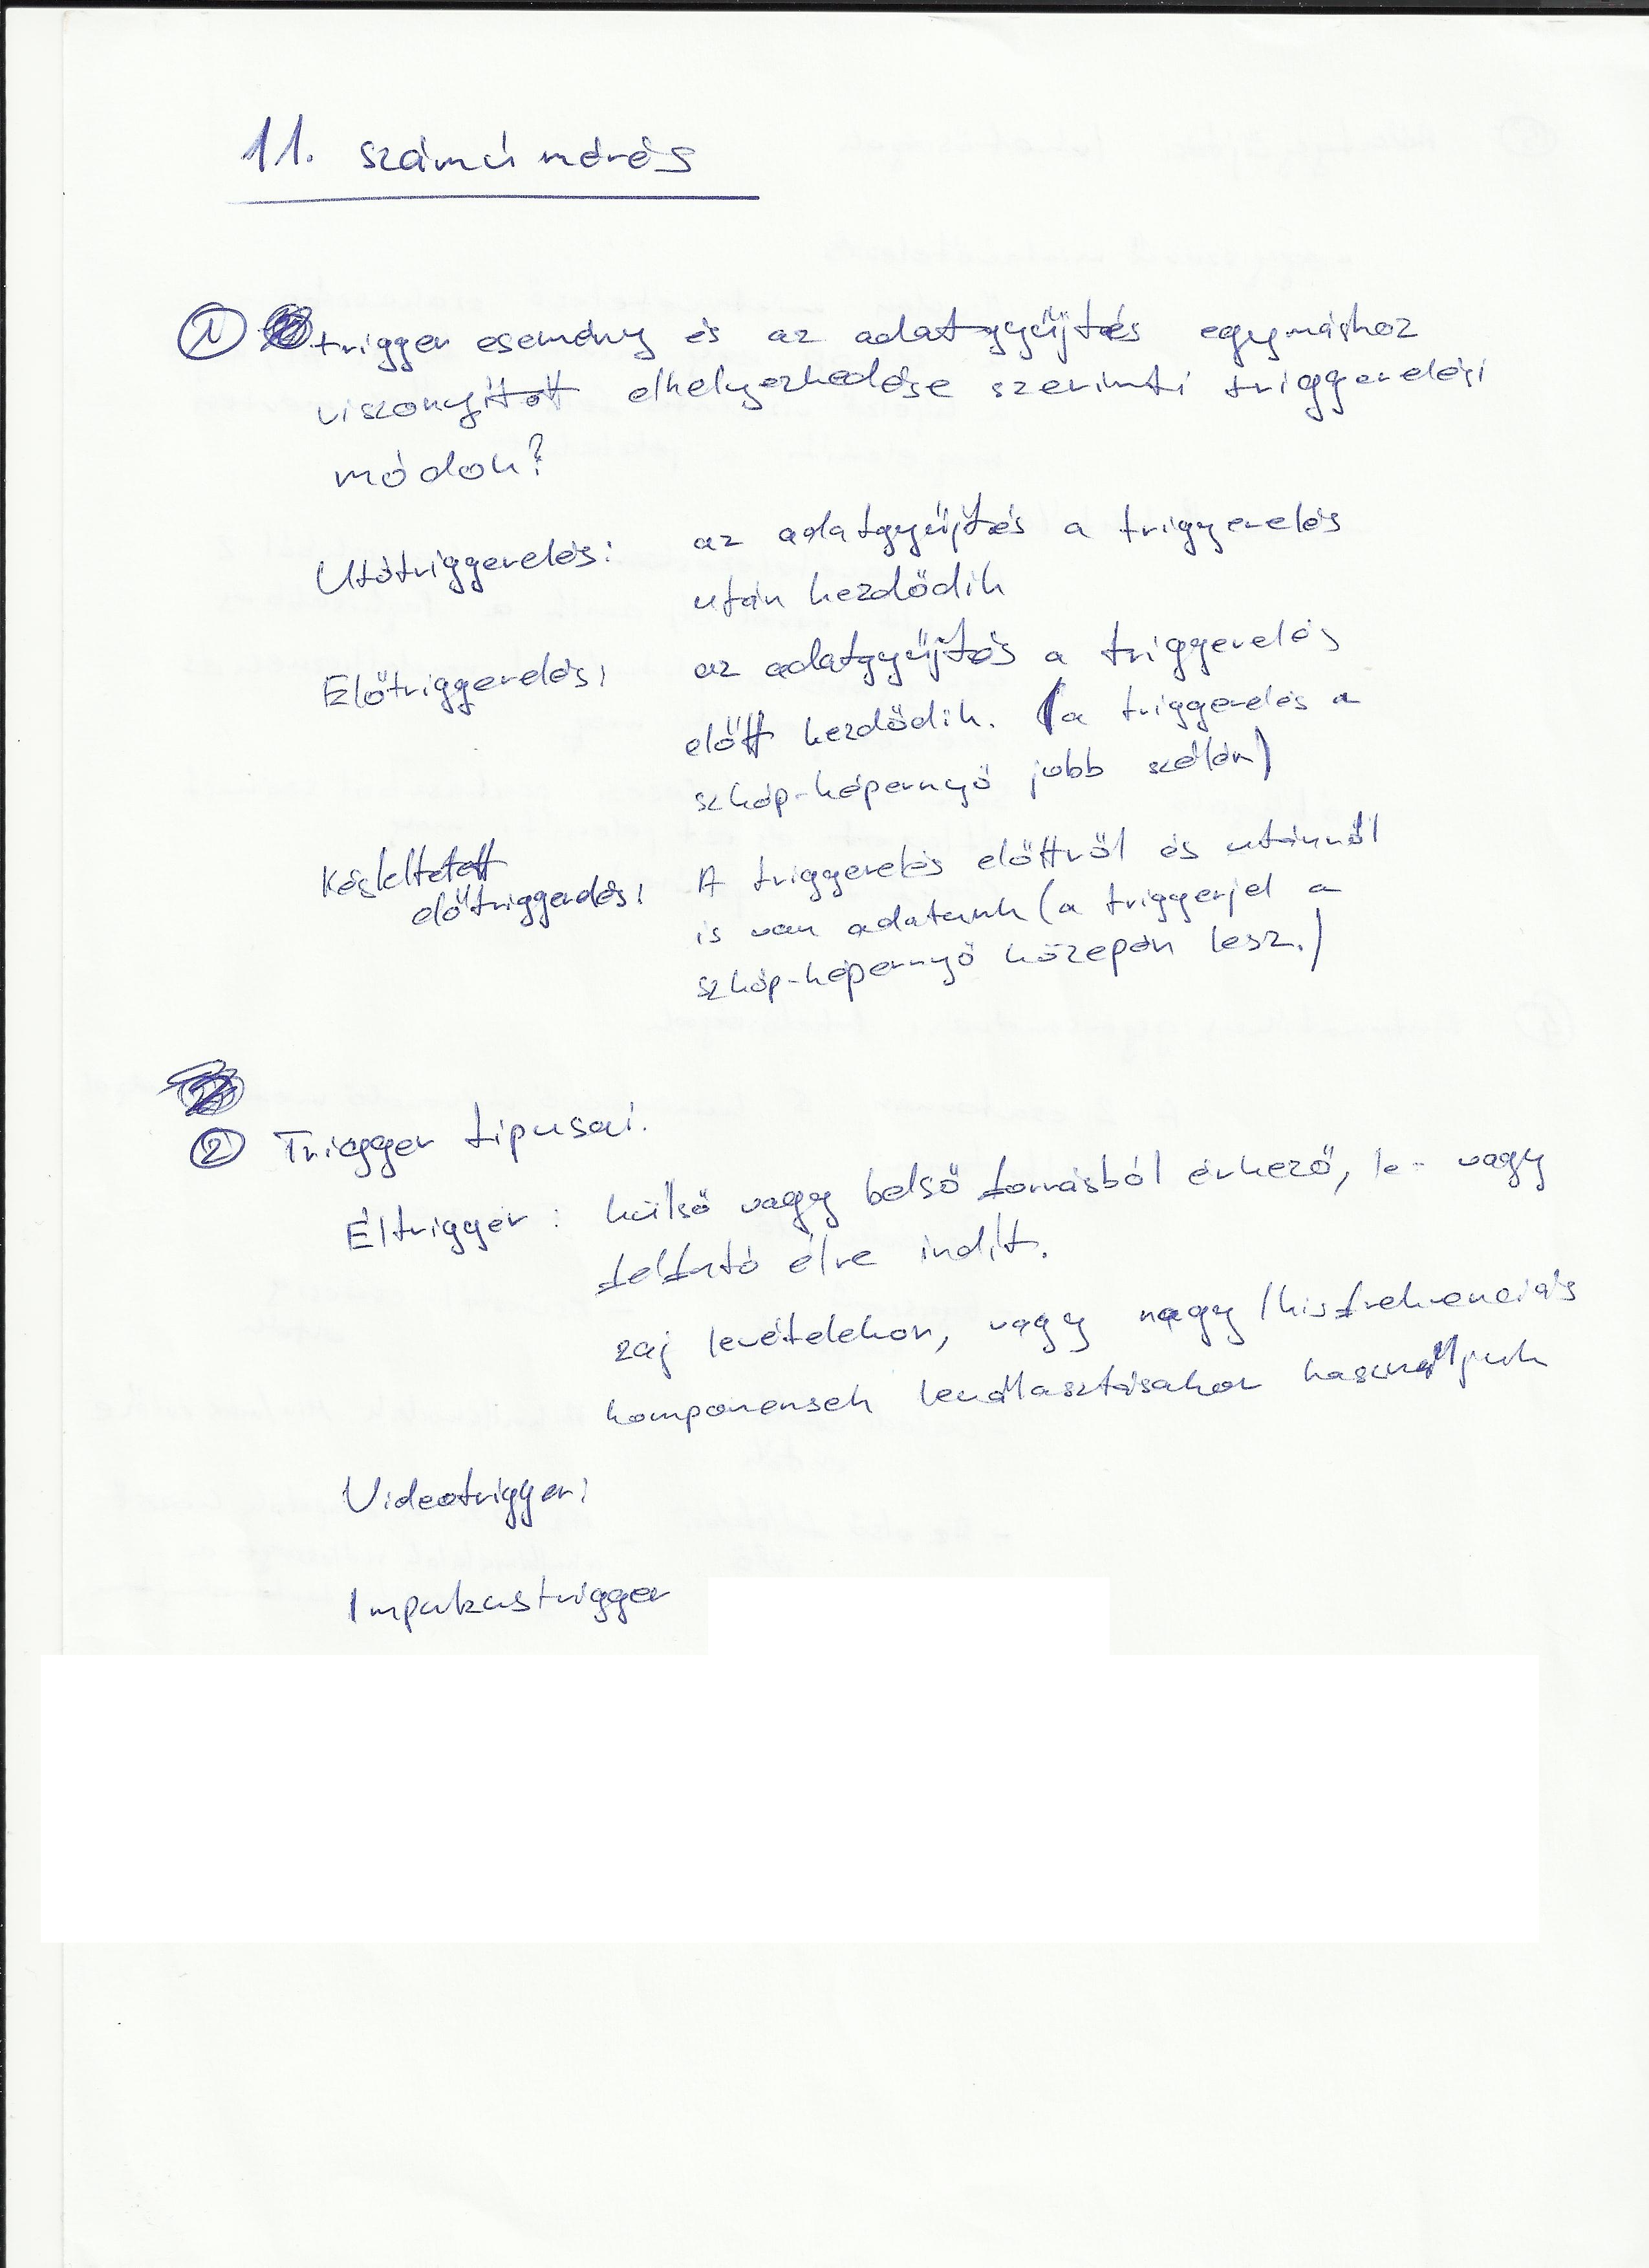 11. számú mérés
① trigger esemény és az adatgyűjtés egymáshoz
viszonyított elhelyezkedése szerinti triggerelési
módok?
Utótriggerelés: az adatgyűjtés a triggerelés
után kezdődik
Előtriggerelés: az adatgyűjtés a triggerelés
előtt kezdődik. (a triggerelés a
szkóp-képernyő jobb szélén)
Késleltetett
előtriggerelés: A triggerelés előttről és utánról
is van adatunk (a triggerjel a
szkóp-képernyő közepén lesz.)
② Trigger típusai.
Éltrigger: külső vagy belső forrásból érkező, le- vagy
felfutó élre indít.
zaj levételekor, vagy nagy/kisfrekvenciás
komponensek leválasztásakor használjuk
Videotrigger:
Impulzustrigger